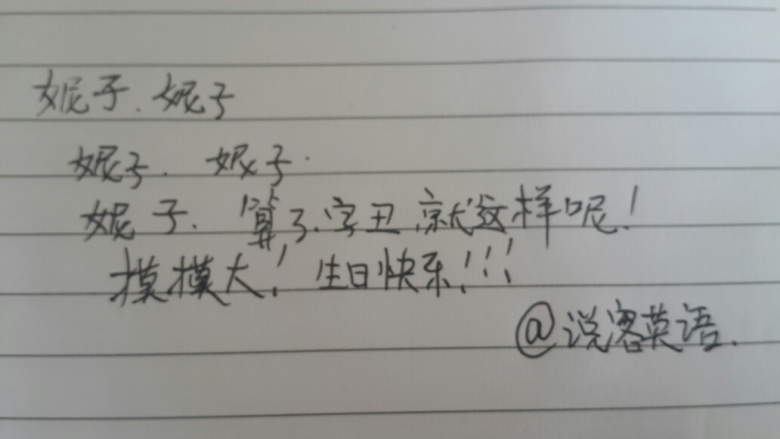 妮子、妮子
妮子、妮子.
妮子、算了、字丑,就这样呢!
摸摸大!生日快乐!!!
@说客英语.